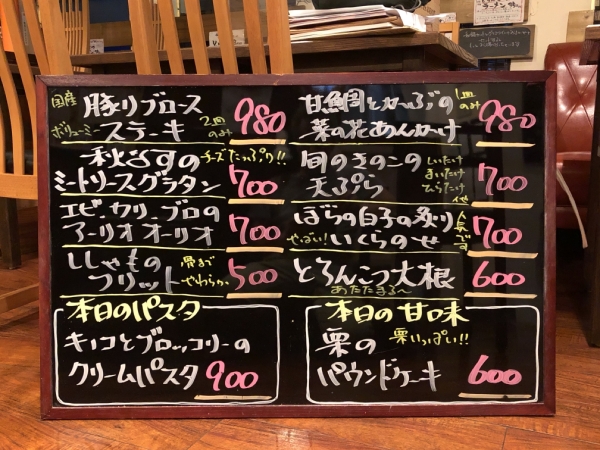 国産 豚リブロース
ボリューミー ステーキ 2皿のみ 980
秋なすの チーズたっぷり!!
ミートソースグラタン 700
エビ、カリ、ブロの
アーリオオーリオ 700
ししゃもの 骨まで
フリット やわらか。 500
本日のパスタ
キノコとブロッコリーの
クリームパスタ 900
甘鯛とかぶの 1皿のみ
菜の花あんかけ 980
旬のきのこの しいたけ まいたけ
天ぷら ひらたけ 他 700
ぼらの白子の炙り 人気です
やばい! いくらのせ 700
とろんこつ大根 600
あたたまる〜
本日の甘味
栗の 栗いっぱい!!
パウンドケーキ 600